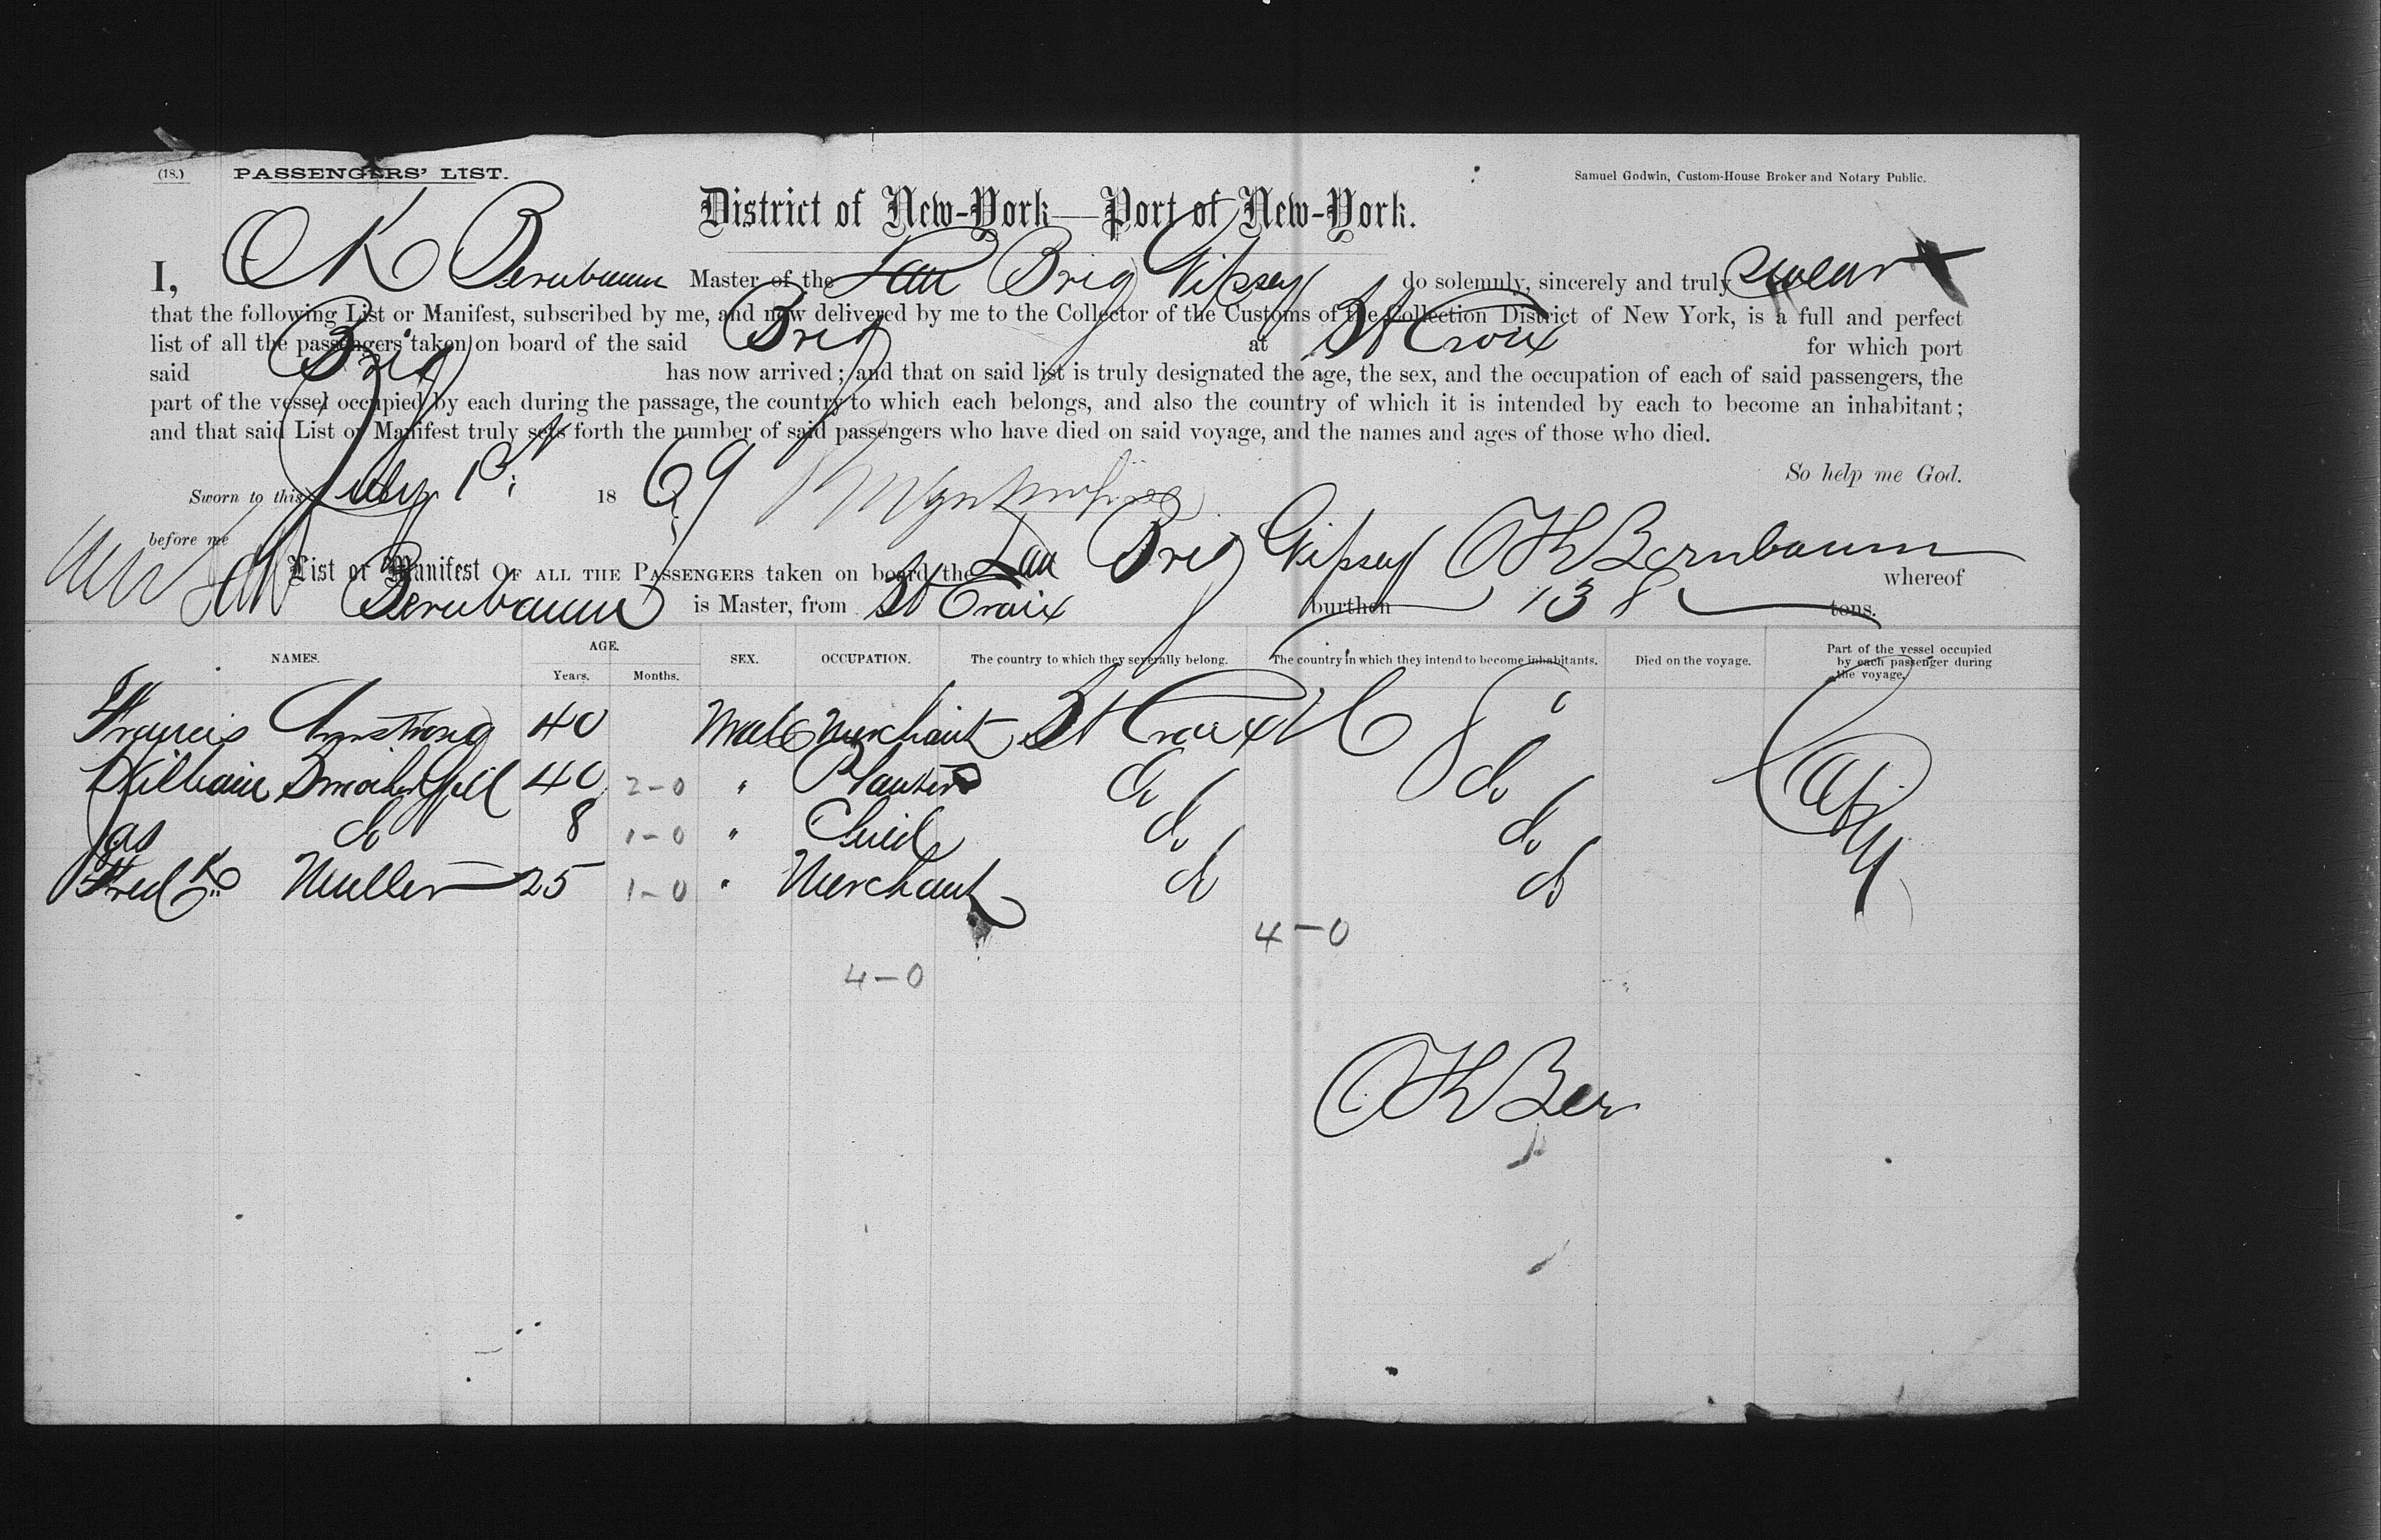 (18.) PASSENGERS' LIST.
Samuel Godwin, Custom-House Broker and Notary Public.
District of New-York—Port of New-York.
I, O K Bernbaum Master of the Dan Brig Gipsey do solemnly, sincerely and truly swear
that the following List or Manifest, subscribed by me, and now delivered by me to the Collector of the Customs of the Collection District of New York, is a full and perfect
list of all the passengers taken on board of the said Brig at St Croix for which port
said Brig has now arrived; and that on said list is truly designated the age, the sex, and the occupation of each of said passengers, the
part of the vessel occupied by each during the passage, the country to which each belongs, and also the country of which it is intended by each to become an inhabitant;
and that said List or Manifest truly sets forth the number of said passengers who have died on said voyage, and the names and ages of those who died.
So help me God.
Sworn to this July 1st 1869
before me
O K Bernbaum
List or Manifest OF ALL THE PASSENGERS taken on board the Dan Brig Gipsey whereof
Bernbaum is Master, from St Croix burthen 138 tons.
NAMES. AGE. Years. Months. SEX. OCCUPATION. The country to which they severally belong. The country in which they intend to become inhabitants. Died on the voyage. Part of the vessel occupied by each passenger during the voyage.
Francis Armstrong 40 Male Merchant St Croix U S
William 40 2-0 " Planter do do
Jas do 8 1-0 " Child do do
Fredk Muller 25 1-0 " Merchant do do
4-0
4-0
O K Ber